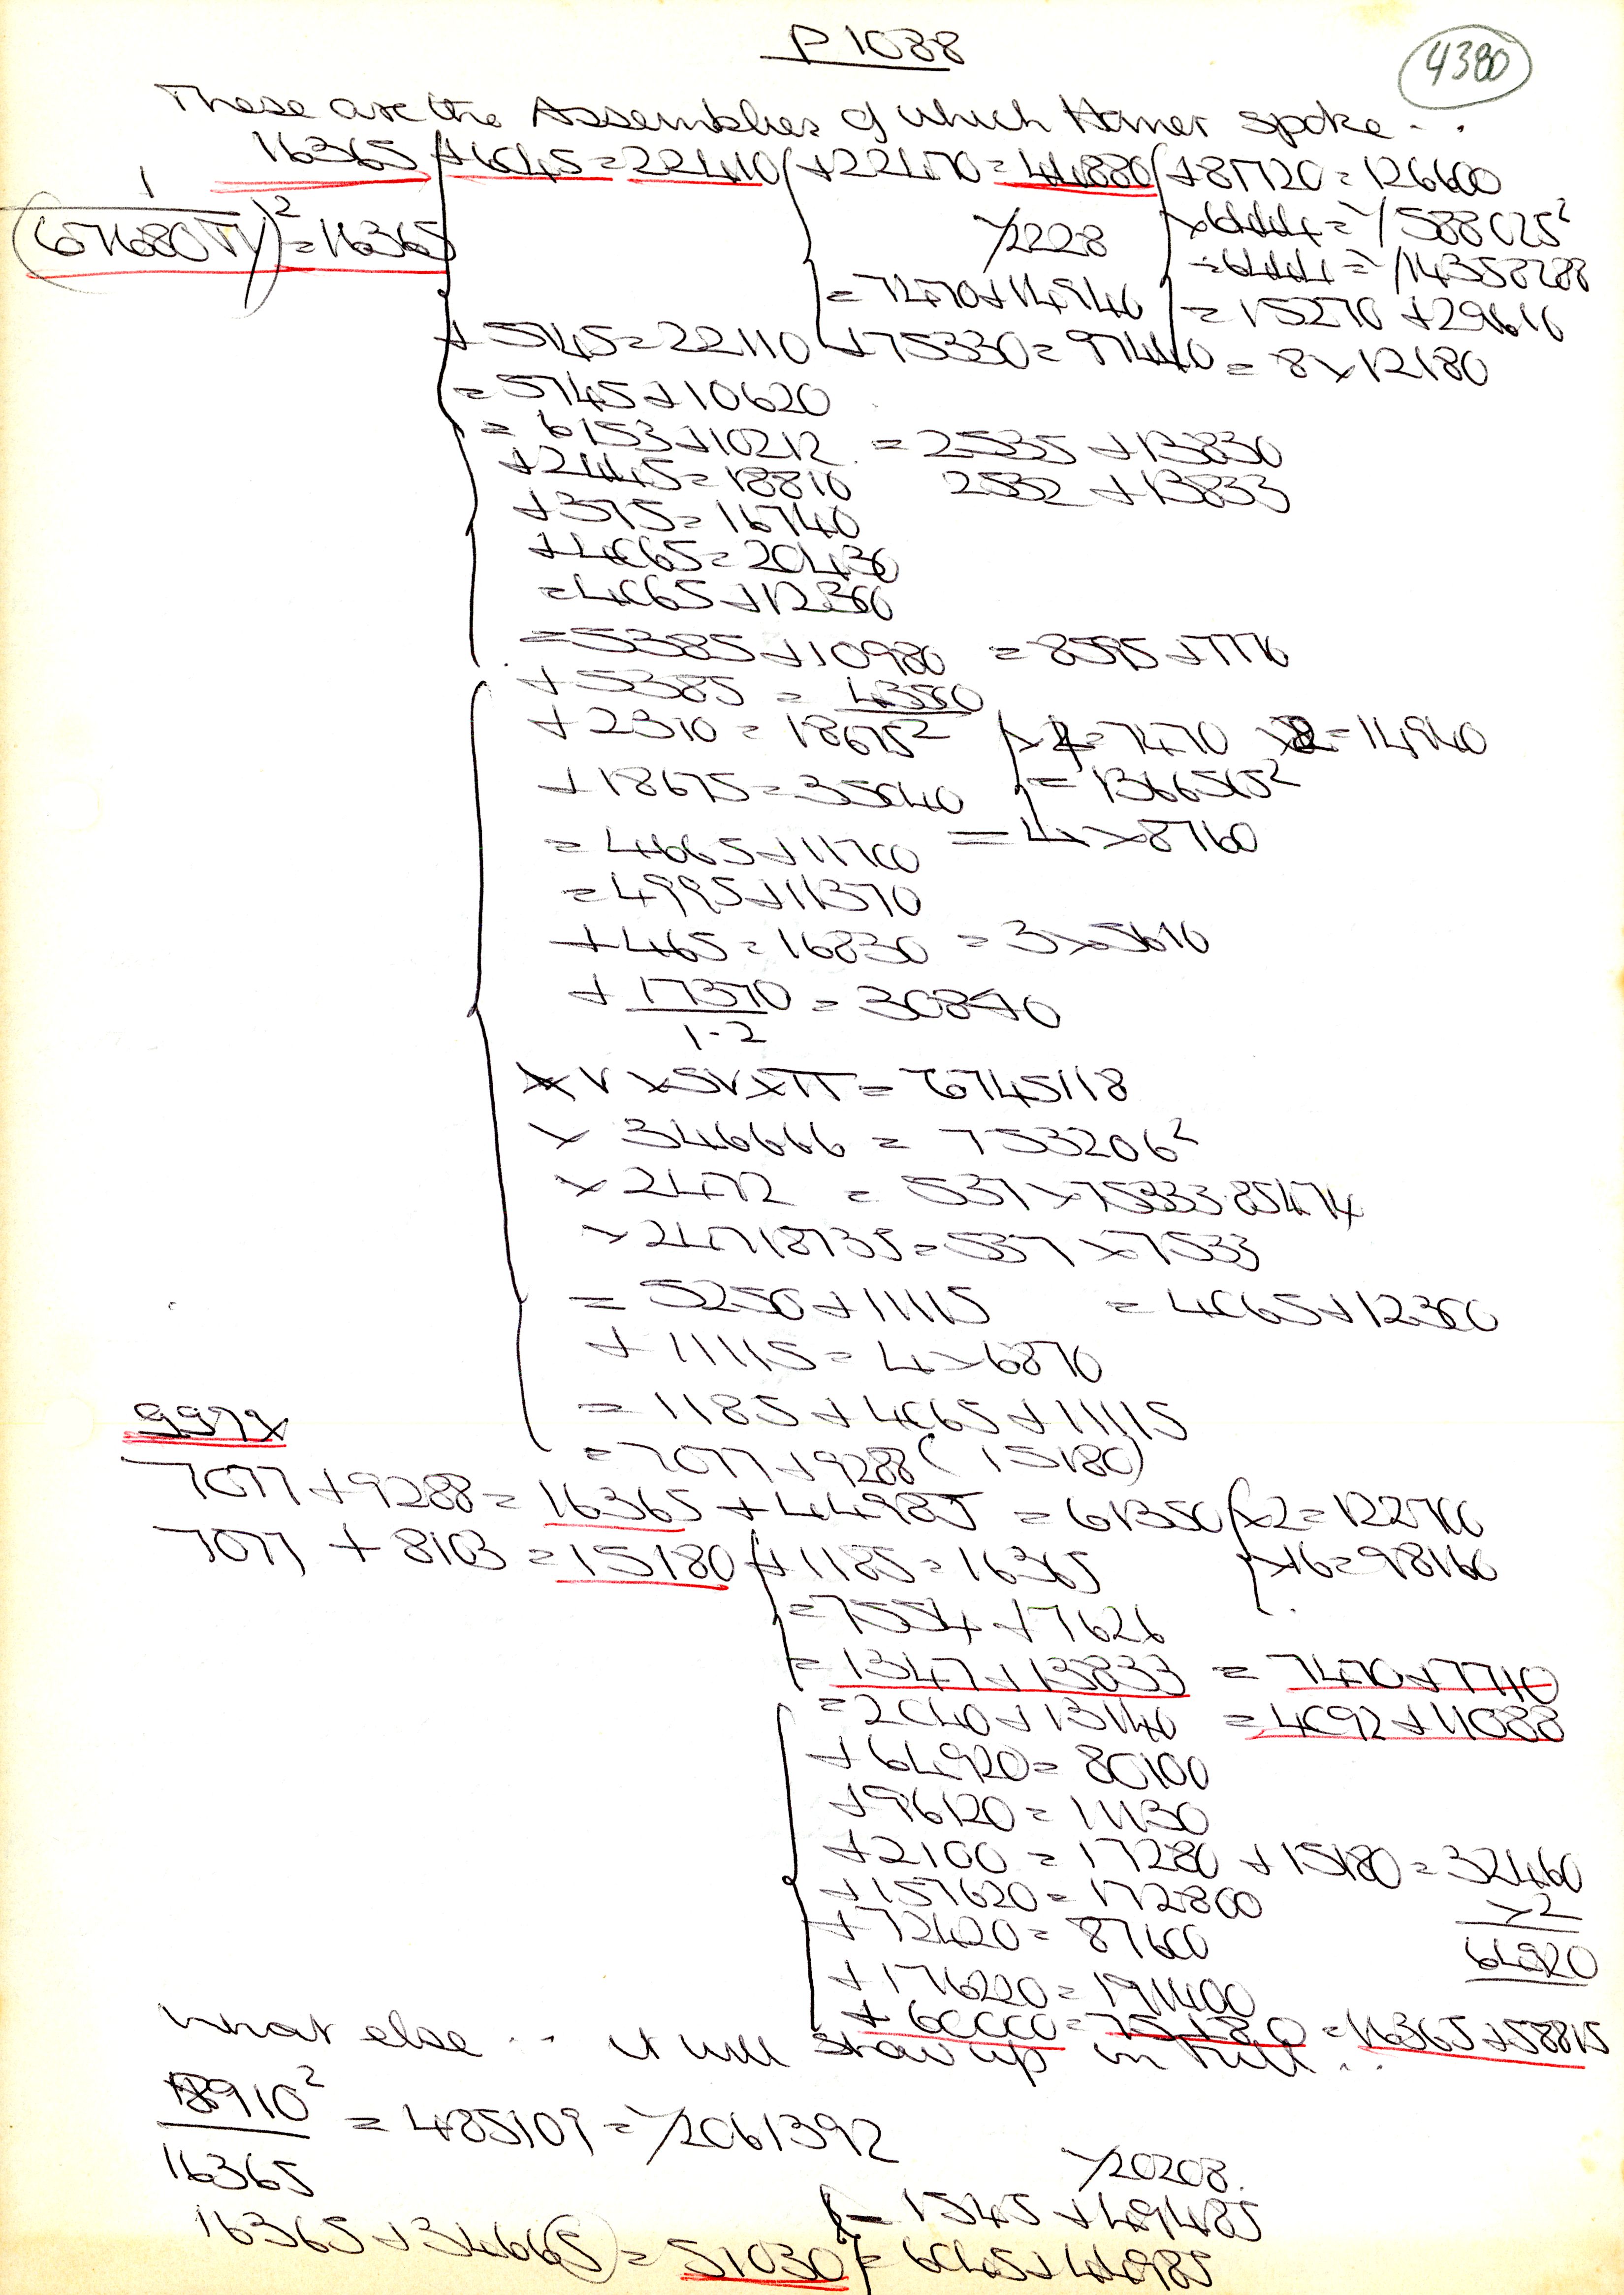 P 1088
4380
These are the Assemblies of which Homer spoke . . .
16365 + 6045 = 22410 + 22470 = 44880 + 81720 = 126600
1
(671680 V)² = 16365
1/2228
× 6444 = 1/588025²
= 6444 = 1/14358288
= 7470 + 14940
= 15270 + 29610
+ 5745 = 22110 + 75330 = 97440 = 8 × 12180
= 5745 + 10620
= 6153 + 10212 = 2535 + 13830
+ 2445 = 18810 2532 + 13833
+ 375 = 16740
+ 4065 = 20430
= 4065 + 12300
= 5385 + 10980 = 8595 + 7770
+ 5385 = 43500
+ 2310 = 18675² × 4 = 7470 × 2 = 14940
+ 18675 = 35040 = 1366565²
= 4665 + 11700 = 4 × 8760
= 4995 + 11370
+ 465 = 16830 = 3 × 5610
+ 17370 = 30840
1·2
× V × SV × π = 6745118
× 346666 = 753206²
× 2472 = 537 × 75333·85474
× 24718735 = 537 × 7533
= 5250 + 11115 = 4065 + 12300
+ 11115 = 4 × 6870
= 1185 + 4065 + 11115
9972
= 7077 + 9288 (15180)
7077 + 9288 = 16365 + 44985 = 61350 × 2 = 122700
7077 + 8103 = 15180 + 1185 = 16365 × 16 = 98160
= 7554 + 7626
= 1347 + 13833 = 7470 + 7710
= 2040 + 13140 = 4092 + 11088
+ 64920 = 80100
+ 96120 = 11130
+ 2100 = 17280 + 15180 = 32460
+ 157620 = 172800 × 2
+ 72420 = 87600 64920
+ 176220 = 191400
+ 60000 = 75180 = 16365 + 58815
What else . . . it will show up in full . .
18910² = 485109 = 1/2061392
16365
1/20208.
= 1545 + 49485
16365 + 34665 = 51030 = 6045 + 44985